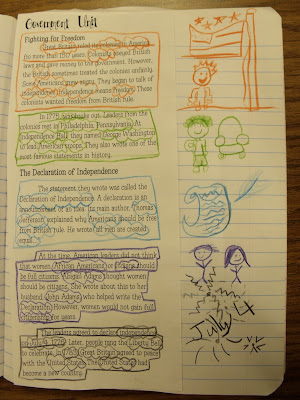 Government Unit
Fighting for Freedom
Great Britain ruled its colonies in America
for more than 150 years. Colonists obeyed British
laws and gave money to the government. However,
the British sometimes treated the colonies unfairly.
Some Americans grew angry. They began to talk of
independence. Independence means freedom. These
colonists wanted freedom from British rule.
In 1775, war broke out. Leaders from the
colonies met in Philadelphia, Pennsylvania. At
Independence Hall, they named George Washington
to lead American troops. They also wrote one of the
most famous statements in history.
The Declaration of Independence
The statement they wrote was called the
Declaration of Independence. A declaration is an
announcement of an idea. Its main author, Thomas
Jefferson, explained why Americans should be free
from British rule. He wrote "all men are created
equal."
At the time, American leaders did not think
that women, African Americans, or Indians should
be full citizens. Abigail Adams thought women
should be citizens. She wrote about this to her
husband, John Adams, who helped write the
Declaration. However, women would not gain full
for years.
The leaders agreed to declare independence
on July 4, 1776. Later, people rang the Liberty Bell
to celebrate. In 1783, Great Britain agreed to peace
with the United States. The United States had
become a new country.
July 4